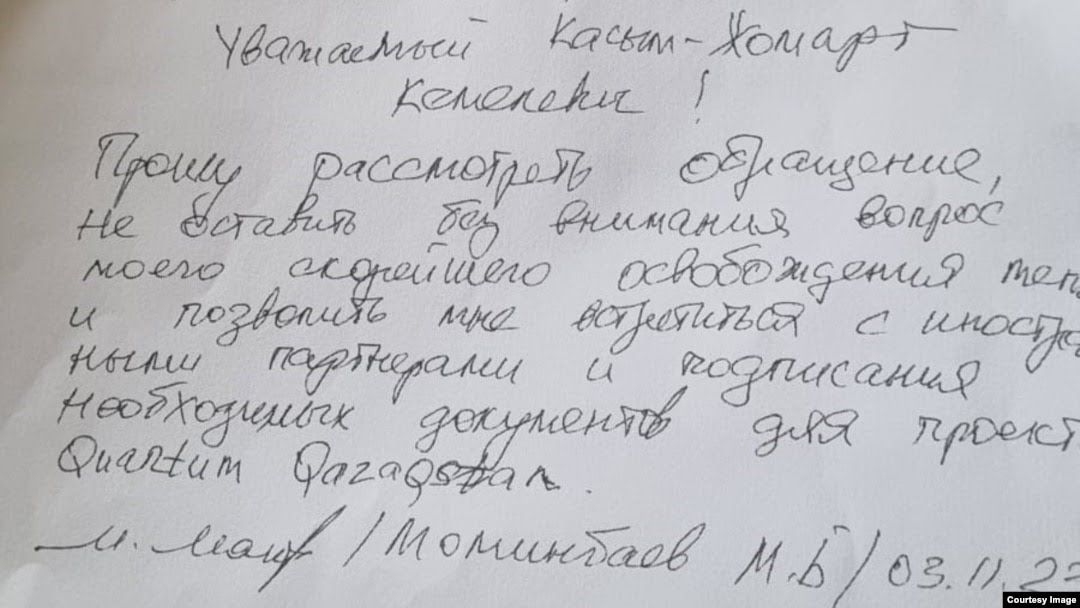 Уважаемый Касым-Жомарт
Кемелевич !
Прошу рассмотреть обращение,
не оставить без внимания вопрос
моего скорейшего освобождения
и позволить мне встретиться с иностран
ными партнерами и подписания
необходимых документов для проект
Quantum Qazaqstan.
/Моминбаев М.Б/ 03.11.2
Courtesy Image